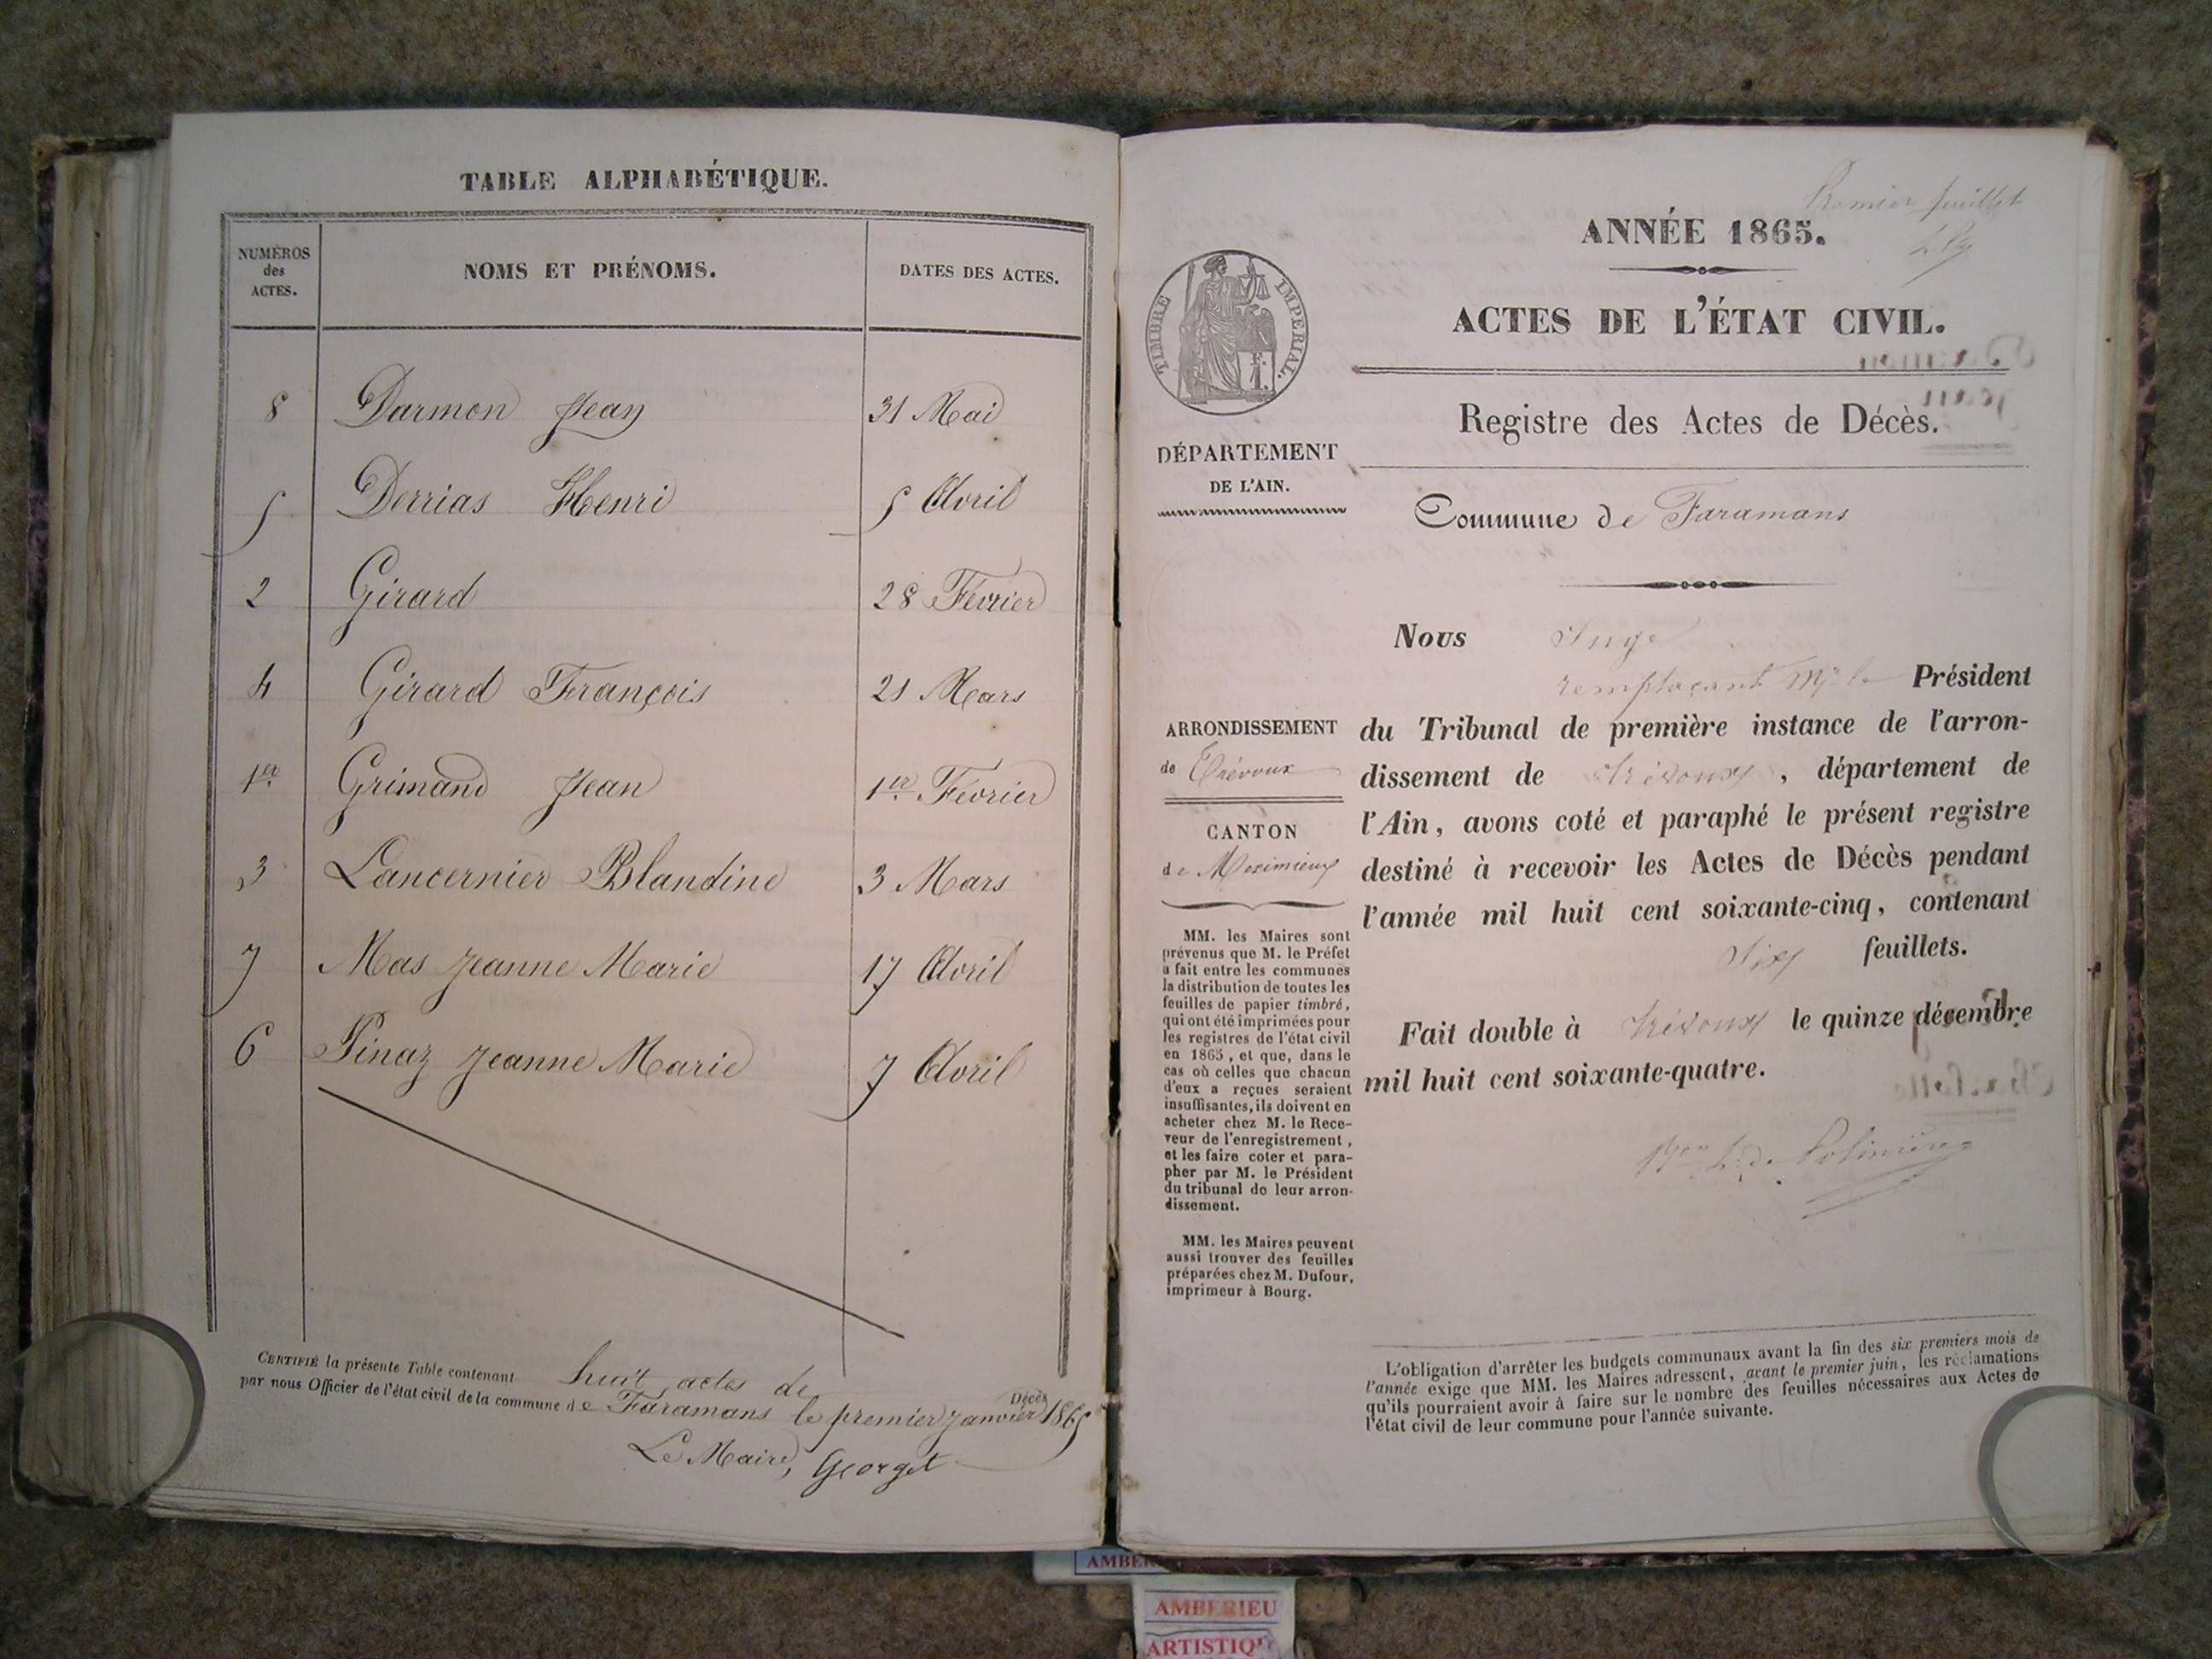 TABLE ALPHABÉTIQUE.
NUMÉROS
des
ACTES.
NOMS ET PRÉNOMS.
DATES DES ACTES.
8 Darmon Jean 31 Mai
5 Derrias Henri 5 Avril
2 Girard 28 Février
4 Girard François 21 Mars
1er Grimand Jean 1er Février
3 Lancernier Blandine 3 Mars
7 Mas Jeanne Marie 17 Avril
6 Pinaz Jeanne Marie 7 Avril
CERTIFIÉ la présente Table contenant huit actes de Décès
par nous Officier de l'état civil de la commune de Faramans le premier janvier 1865
Le Maire, Georget
Premier feuillet
ANNÉE 1865.
ACTES DE L'ÉTAT CIVIL.
Registre des Actes de Décès.
Commune de Faramans
TIMBRE IMPERIAL.
F.
1.
DÉPARTEMENT
DE L'AIN.
ARRONDISSEMENT
de Trévoux
CANTON
de Meximieux
MM. les Maires sont
prévenus que M. le Préfet
a fait entre les communes
la distribution de toutes les
feuilles de papier timbré,
qui ont été imprimées pour
les registres de l'état civil
en 1865, et que, dans le
cas où celles que chacun
d'eux a reçues seraient
insuffisantes, ils doivent en
acheter chez M. le Rece-
veur de l'enregistrement,
et les faire coter et para-
pher par M. le Président
du tribunal de leur arron-
dissement.
MM. les Maires peuvent
aussi trouver des feuilles
préparées chez M. Dufour,
imprimeur à Bourg.
Nous Juge
remplaçant Mr le Président
du Tribunal de première instance de l'arron-
dissement de Trévoux, département de
l'Ain, avons coté et paraphé le présent registre
destiné à recevoir les Actes de Décès pendant
l'année mil huit cent soixante-cinq, contenant
Six feuillets.
Fait double à Trévoux le quinze décembre
mil huit cent soixante-quatre.
L'obligation d'arrêter les budgets communaux avant la fin des six premiers mois de
l'année exige que MM. les Maires adressent, avant le premier juin, les réclamations
qu'ils pourraient avoir à faire sur le nombre des feuilles nécessaires aux Actes de
l'état civil de leur commune pour l'année suivante.
AMBERIEU
ARTISTIQ